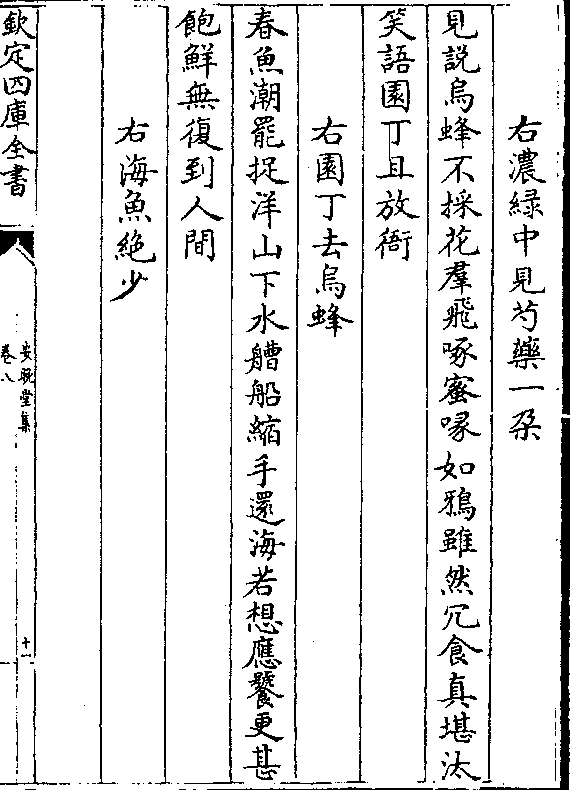 右濃緑中見芍藥一朶
見説烏蜂不採花羣飛啄蜜喙如鴉雖然冗食真堪汰
笑語園丁且放衙
右園丁去烏蜂
春魚潮罷捉洋山下水艚船縮手還海若想應饕更甚
飽鮮無復到人間
右海魚絶少
欽定四庫全書
安晚堂集
卷八
十一